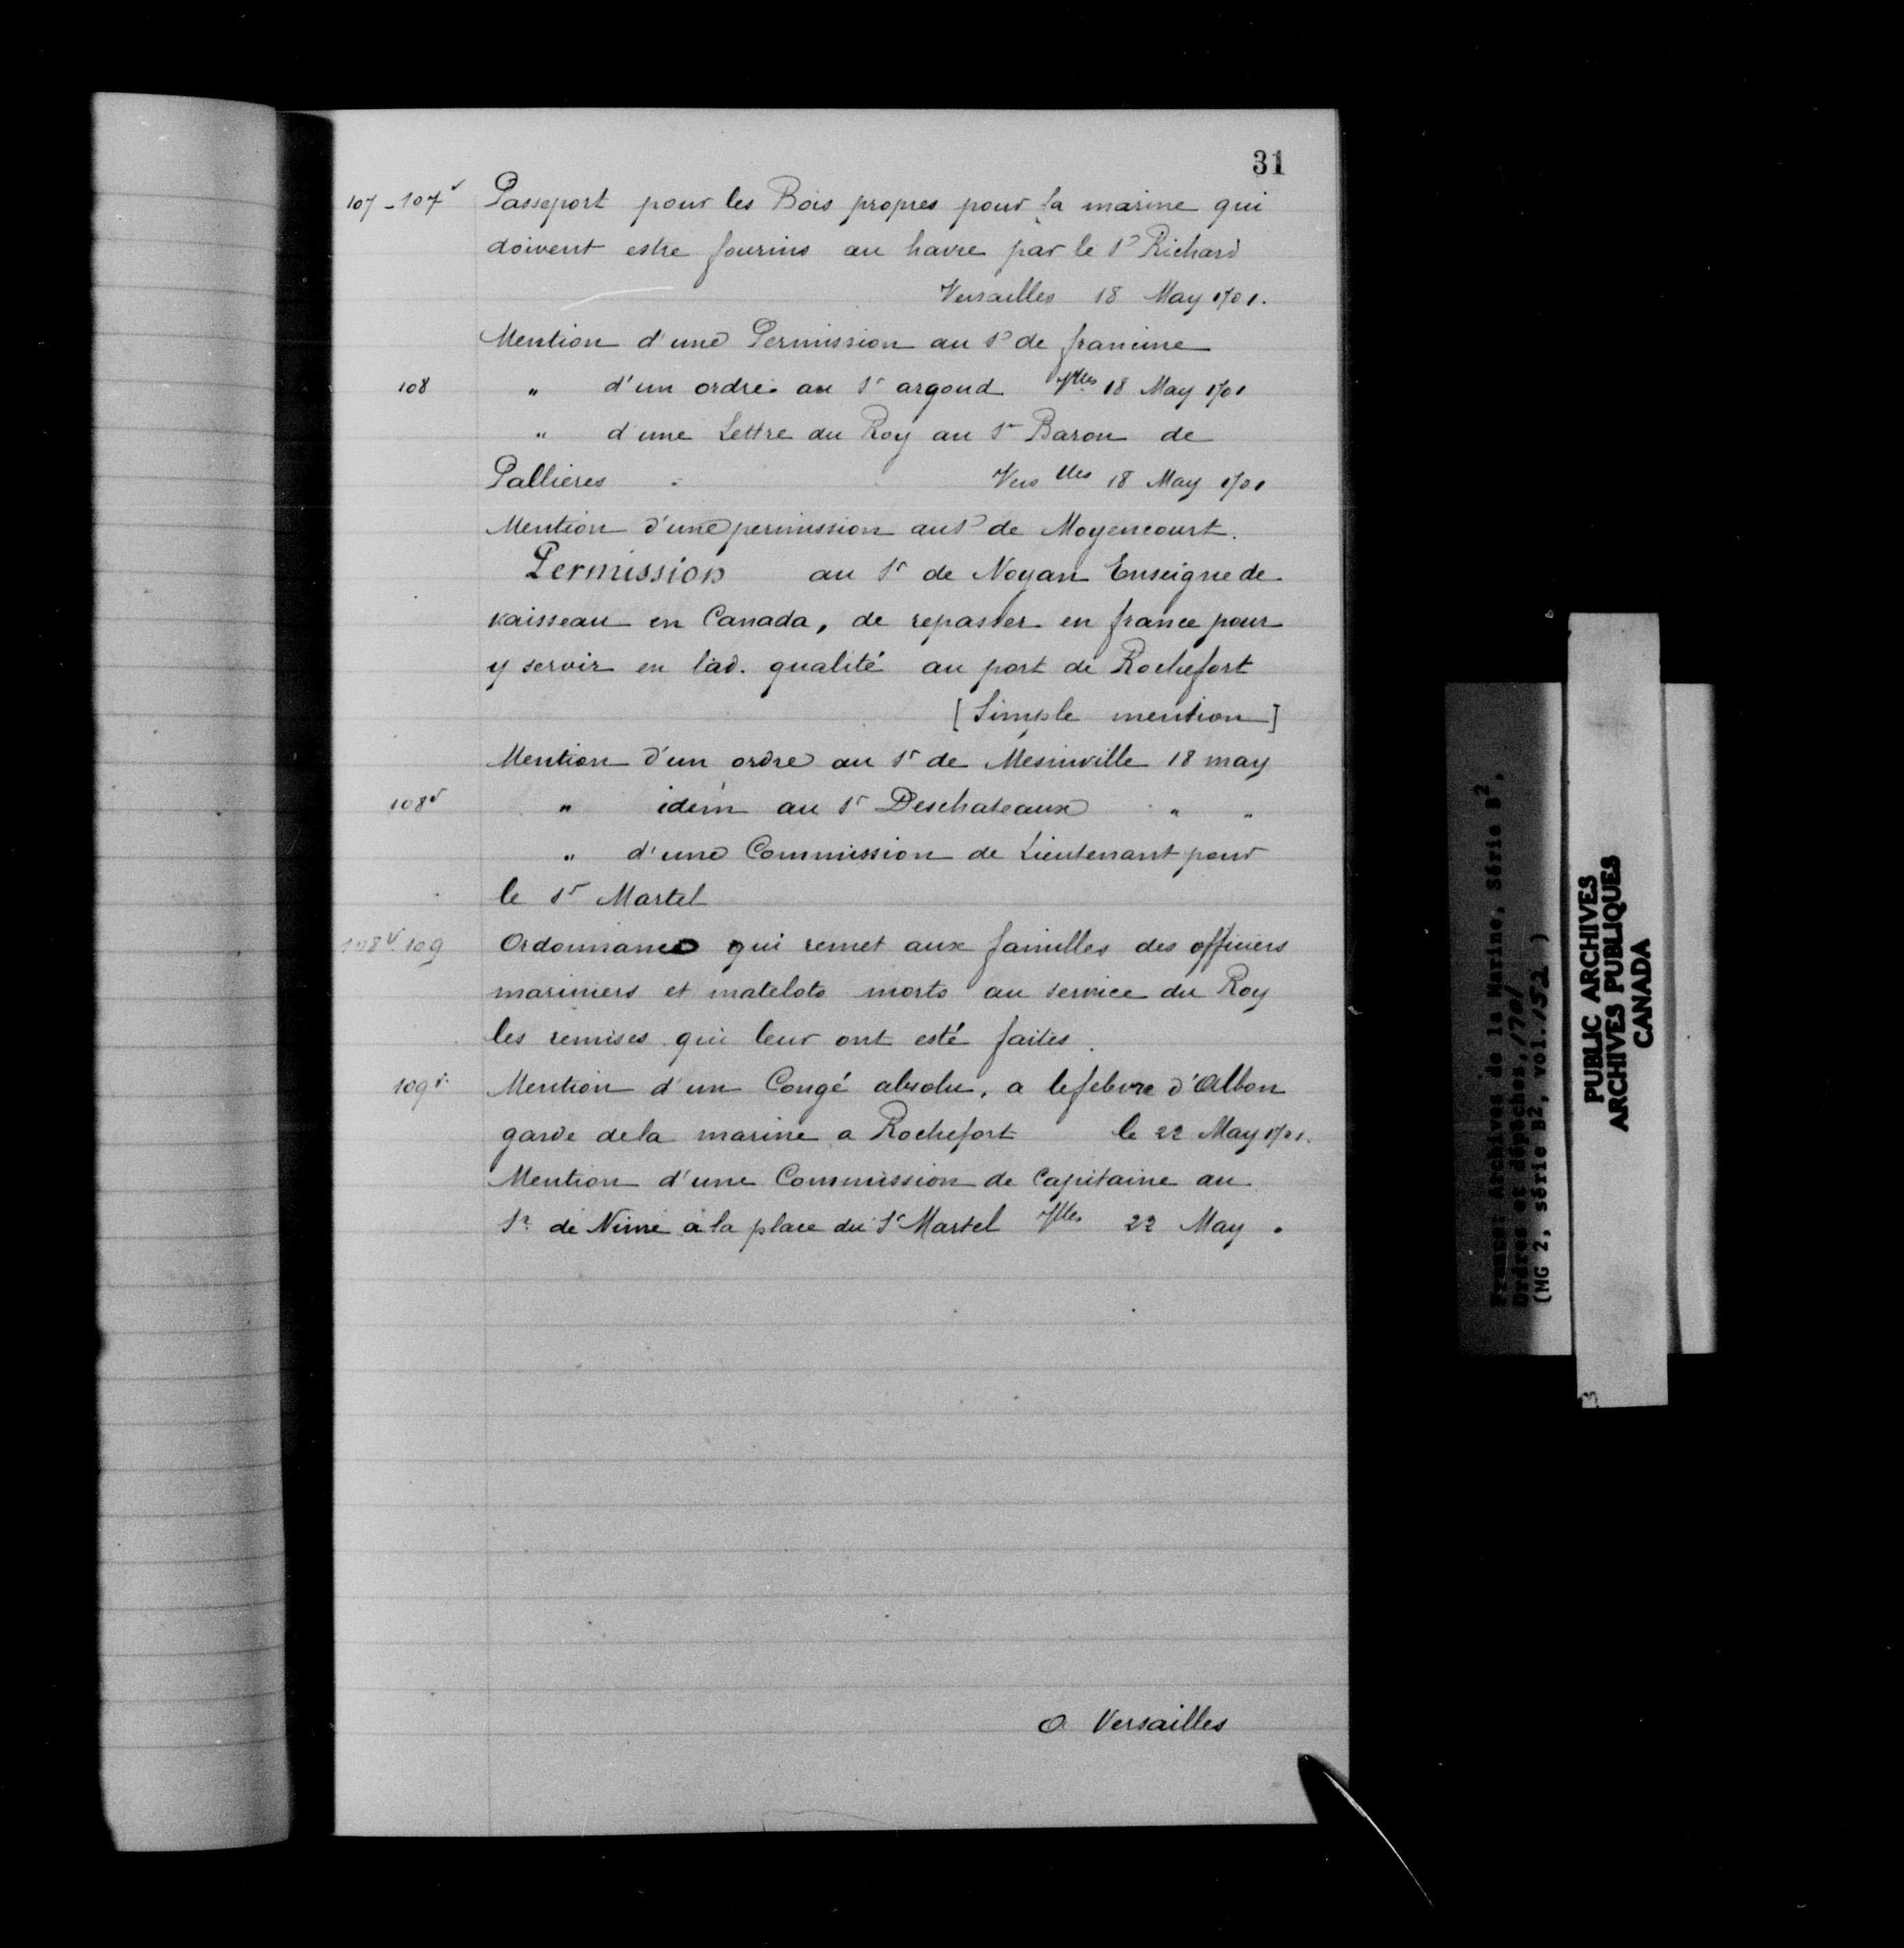 31
107 - 107v Passeport pour les Bois propres pour la marine qui
doivent estre fournis au havre par le Sr Richard
Versailles 18 May 1701.
Mention d'une Permission au Sr de francine
108 " d'un ordre au Sr argoud Vlles 18 May 1701
" d'une Lettre du Roy au Sr Baron de
Pallieres Vers lles 18 May 1701
Mention d'une permission au Sr de Moyencourt.
Permission au Sr de Noyan Enseigne de
vaisseau en Canada, de repasser en france pour
y servir en lad. qualité au port de Rochefort
[Simple mention]
Mention d'un ordre au Sr de Mesinville 18 may
108v " idem au Sr Deschateaux " "
" d'une Commission de Lieutenant pour
le Sr Martel
108v 109 Ordonnance qui remet aux familles des officiers
mariniers et matelots morts au service du Roy
les remises qui leur ont esté faites.
109v Mention d'un Congé absolu, a lefebvre d'Albon
garde de la marine a Rochefort le 22 May 1701.
Mention d'une Commission de Capitaine au
Sr. de Nime à la place du Sr Martel Vlles 22 May.
a Versailles
France: Archives de la Marine, Série B2,
Ordres et dépêches, 1701
(MG 2, série B2, vol. 152 )
PUBLIC ARCHIVES
ARCHIVES PUBLIQUES
CANADA
3